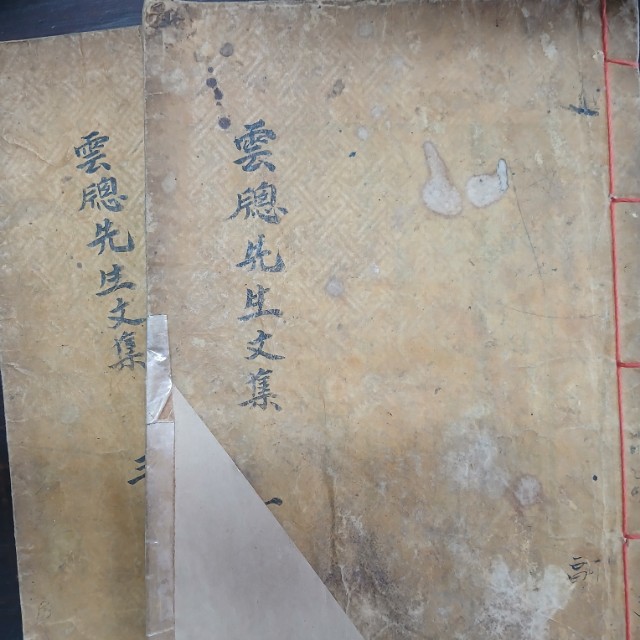 雲牕先生文集
三
雲牕先生文集
一